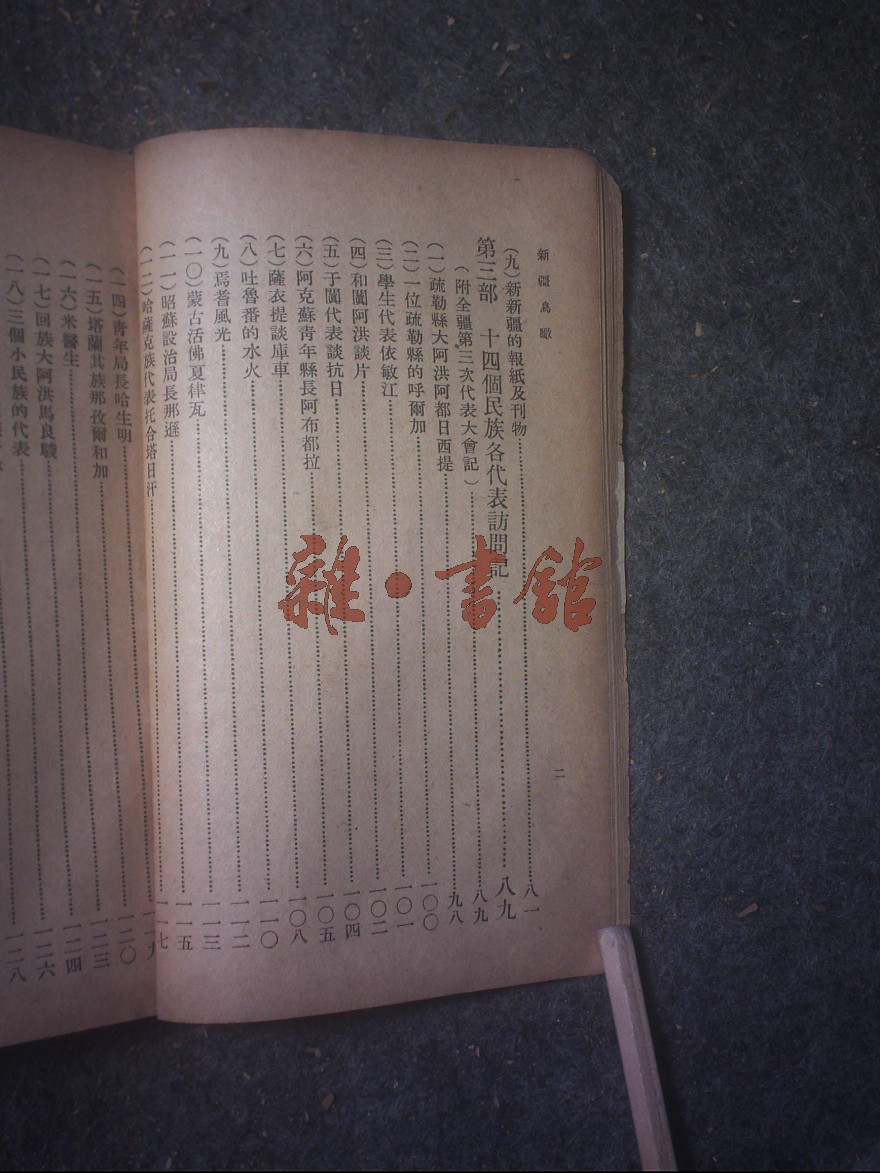 新疆鳥瞰
二
(九)新新疆的報紙及刊物……八一
第三部 十四個民族各代表訪問記……八九
(附全疆第三次代表大會記)……八九
(一)疏勒縣大阿洪阿都日西提……九八
(二)一位疏勒縣的呼爾加……一〇〇
(三)學生代表依敏江……一〇一
(四)和闐阿洪談片……一〇二
(五)于闐代表談抗日……一〇四
(六)阿克蘇青年縣長阿布都拉……一〇五
(七)薩衣提談庫車……一〇八
(八)吐魯番的水火……一一〇
(九)焉耆風光……一一二
(一〇)蒙古活佛夏律瓦……一一三
(一一)昭蘇設治局長那遜……一一五
(一二)哈薩克族代表托合塔日汗……一一七
(一四)青年局長哈生明……一二〇
(一五)塔蘭其族那孜爾和加……一二三
(一六)米醫生……一二四
(一七)回族大阿洪馬良駿……一二六
(一八)三個小民族的代表……一二八
雜·書館